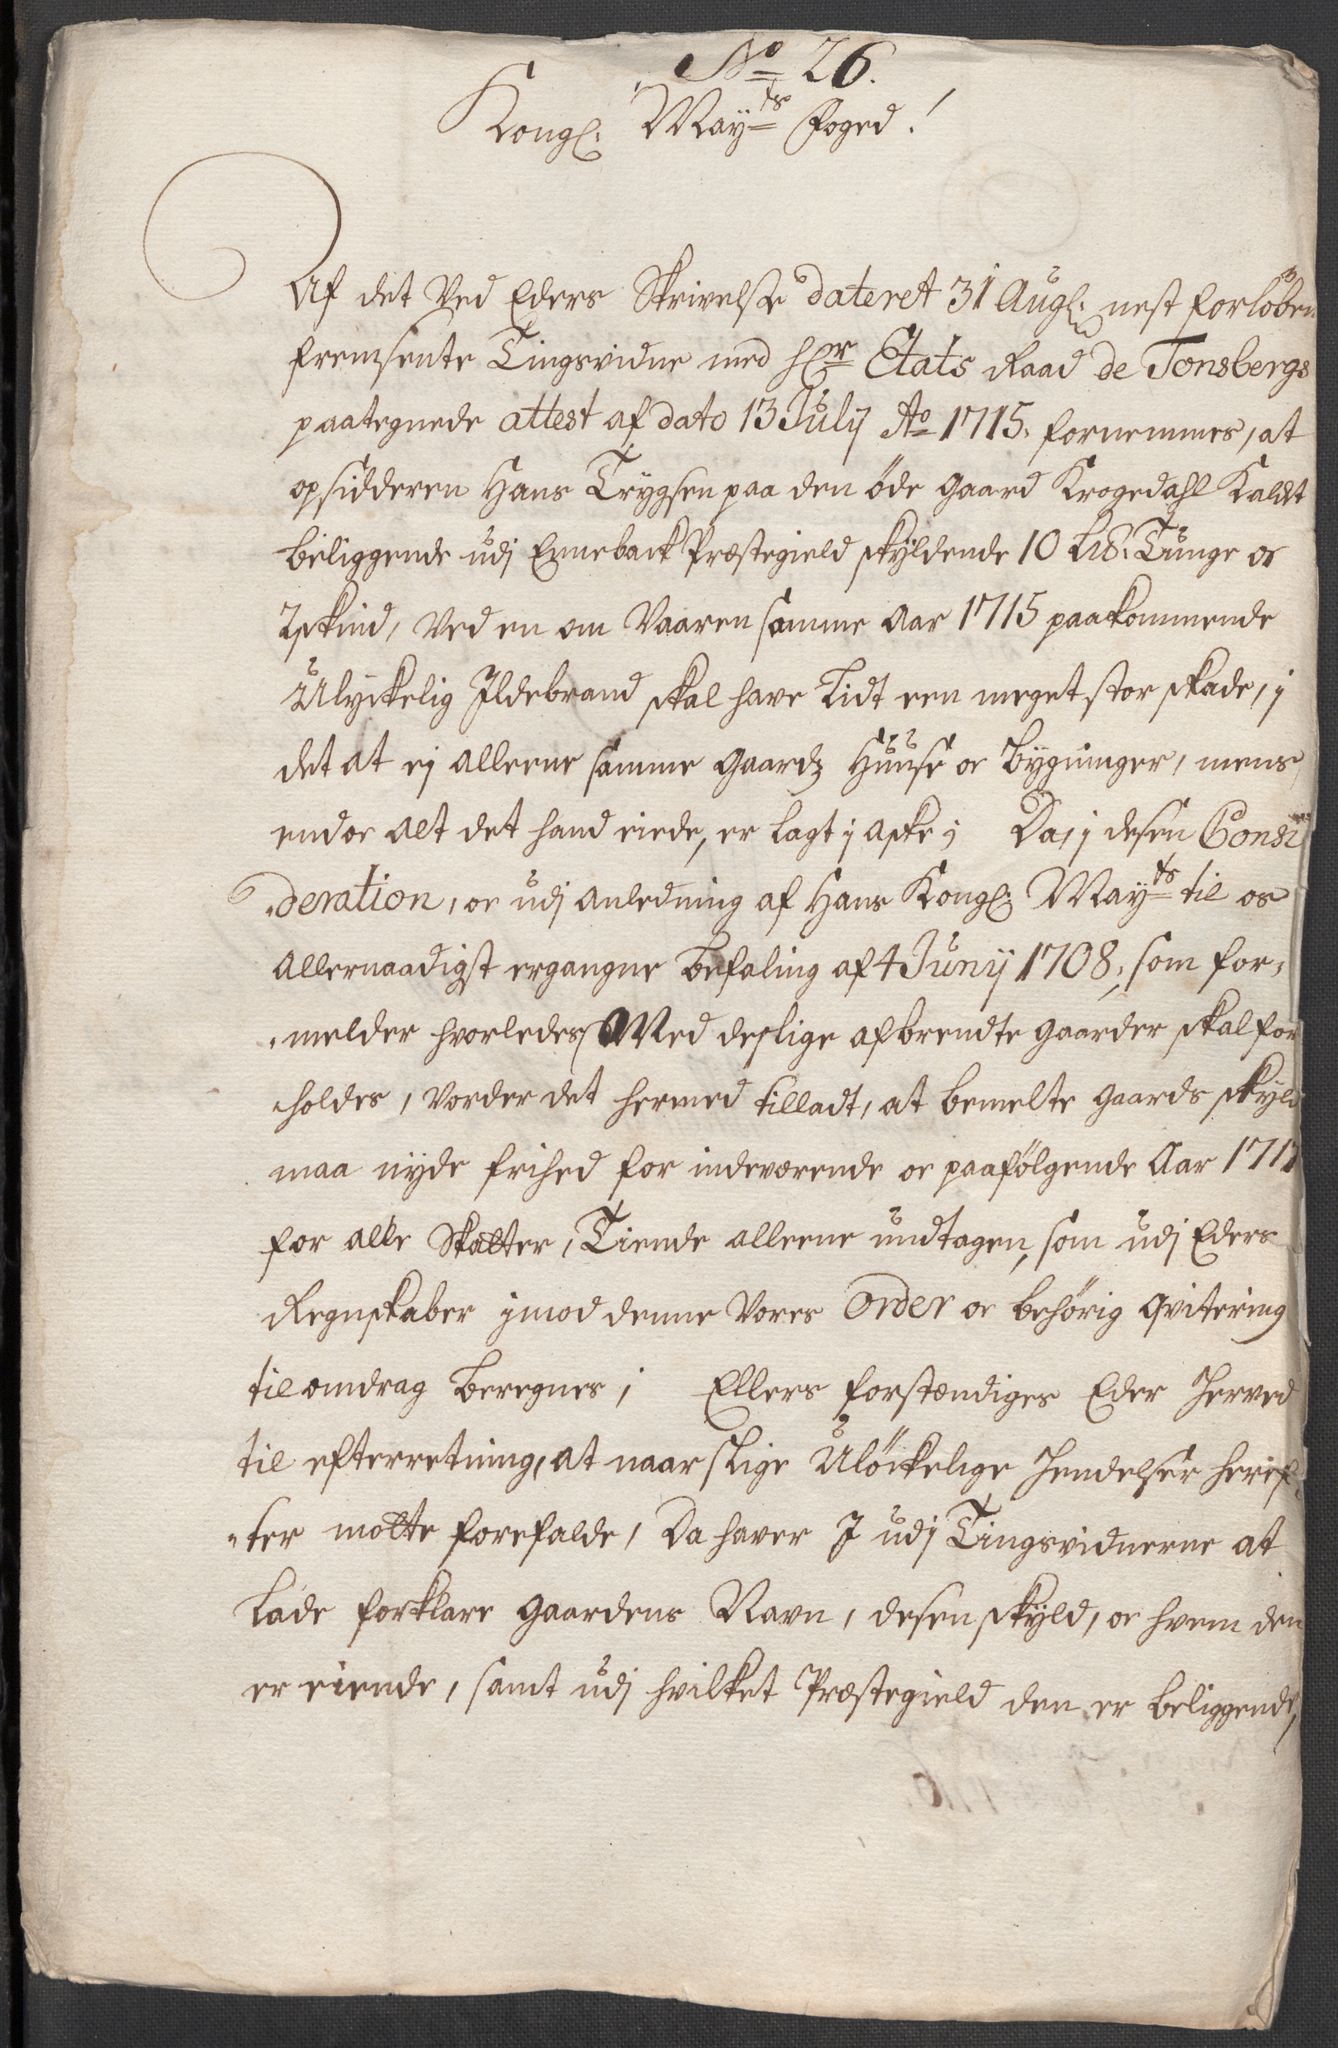 No 26.
Kongl: Mayts Foged!
Af det Ved Eders Skrivelse dateret 31 Augl: nest forløben
fremsente Tingsvidne med Hr Etats Raad de Tonsbergs
paategnede attest af dato 13 July Ao 1715. fornemmes, at
opsidderen Hans Trygsen paa den øde gaard Krogedahl Kaldt
beliggende udj Enneback Præstegield skyldende 10 Lis: Tunge oc
2 skind, Ved en om Vaaren samme Aar 1715 paakommende
Ulyckelig Ildebrand skal have Lidt een meget stor skade, j
det at ej alleene samme gaardz Huuse oc Bygninger, mens
endoc alt det hand eiede, er lagt j aske; Da, j desen Consi
deration, oc udj anledning af Hans Kongl: Mayts til os
allernaadigst ergangne Befaling af 4 Junij 1708, som for-
melder hvorledes Med deslige afbrendte gaarder skal for
holdes, Vorder det hermed tilladt, at bemelte gaards skyld
maa nyde frihed for indeværende oc paafølgende Aar 1717
for alle Skatter, Tiende alleene undtagen, som udj Eders
Regnskaber jmod denne Vores Order oc behørig qvitering
til omdrag beregnes; Ellers forstændiges Eder herved
til efterretning, at naar slige Uløckelige hendelser heref-
ter motte forefalde, Da haver I udj Tingsvidnerne at
lade forklare gaardens Navn, desen skyld, oc hvem den
er eiende, samt udj hvilket Præstegield den er beliggende,